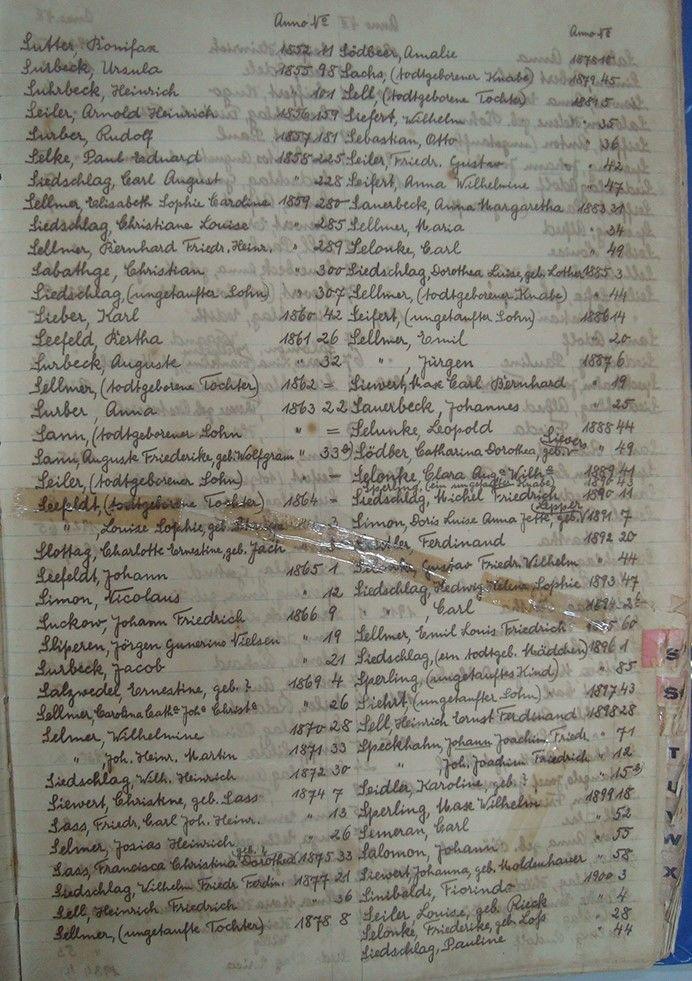 Anno No
Sutter, Bonifax 1852 41
Surbeck, Ursula 1855 98
Suhrbeck, Heinrich " 101
Seiler, Arnold Heinrich 1856 159
Surber, Rudolf 1857 181
Selke, Paul Eduard 1858 225
Siedschlag, Carl August " 228
Sellmer Elisabeth Sophie Caroline 1859 280
Siedschlag, Christiane Louise " 285
Sellmer, Bernhard Friedr. Heinr. " 289
Sabathge, Christian " 300
Siedschlag, (ungetaufter Sohn) " 307
Sieber, Karl 1860 42
Seefeld, Bertha 1861 26
Surbeck, Auguste " 32
Sellmer, (todtgeborene Tochter) 1862 =
Surber, Anna 1863 22
Sann, (todtgeborener Sohn " =
Sann, Auguste Friederike, geb. Wolfgram " 33
Seiler, (todtgeborener Sohn) " -
Seefeldt, (todtgeborene Tochter) 1864 -
" Louise Sophie, geb.
Slottag, Charlotte Ernestine, geb. Jäch
Seefeldt, Johann 1865 1
Simon, Nicolaus " 12
Suckow, Johann Friedrich 1866 9
Sliperen, Jörgen Gunerino Nielsen " 19
Surbeck, Jacob " 21
Salzwedel, Ernestine, geb. ? 1869 4
Sellmer, Carolina Cathe Johe Christe " 26
Selmer, Wilhelmine 1870 28
" Joh. Heinr. Martin 1871 33
Siedschlag, Wilh. Heinrich 1872 30
Siewert, Christine, geb. Sass 1874 7
Sass, Friedr. Carl Joh. Heinr. " 13
Selmer, Josias Heinrich " 26
Sass, Francisca Christina Dorothea geb. ? 1875 33
Siedschlag, Wilhelm Friedr. Ferdin. 1877 21
Sell, Heinrich Friedrich " 36
Sellmer, (ungetaufte Tochter) 1878 8
Anno No
Södbeer, Amalie 1878 18
Sachs, (todtgeborener Knabe) 1879 45
Sell, (todtgeborene Tochter) 1881 5
Siefert, Wilhelm " 35
Sebastian, Otto " 36
Seiler, Friedr. Gustav " 42
Seifert, Anna Wilhelmine " 47
Sauerbeck, Anna Margaretha 1883 31
Sellmer, Maria " 34
Selonke, Carl " 49
Siedschlag, Dorothea Luise, geb. Lother 1885 3
Sellmer, (todtgeborener Knabe) " 44
Seifert, (ungetaufter Sohn) 1886 14
Sellmer, Emil " 20
" , Jürgen 1887 6
Siewert, Max Carl Bernhard " 19
Sauerbeck, Johannes " 25
Selunke, Leopold 1888 44
Södber, Catharina Dorothea, geb. Sievers " 49
Selonke, Clara Auge Wilhe 1889 41
Sperling, (ein ungetauften Knabe) 1890 43
Siedschlag, Michel Friedrich 1890 11
Simon, Doris Luise Anna Jette, geb. 1891 7
Ferdinand 1892 20
Gustav Friedr. Wilhelm " 44
Siedschlag, Hedwig Helena Sophie 1893 47
" , Carl 1894
Sellmer, Emil Louis Friedrich 60
Siedschlag, (ein todtgeb. Mädchen) 1896 1
Sperling, (ungetauftes Kind) " 85
Siehrt, (ungetaufter Sohn) 1897 43
Sell, Heinrich Ernst Ferdinand 1898 28
Speckhahn, Johann Joachim Friedr. " 71
" Joh. Joachim Friedrich " 12
Seidler, Karoline, geb. ? " 15
Sperling, Max Wilhelm 1899 18
Semeran, Carl " 52
Salomon, Johann " 55
Siewert Johanna, geb. Moldenhauer " 58
Sinibaldi, Fiorindo 1900 3
Seiler Louise, geb. Rieck " 4
Selonke, Friederike, geb. Lass " 28
Siedschlag, Pauline " 44
S
S
T
U
W
X